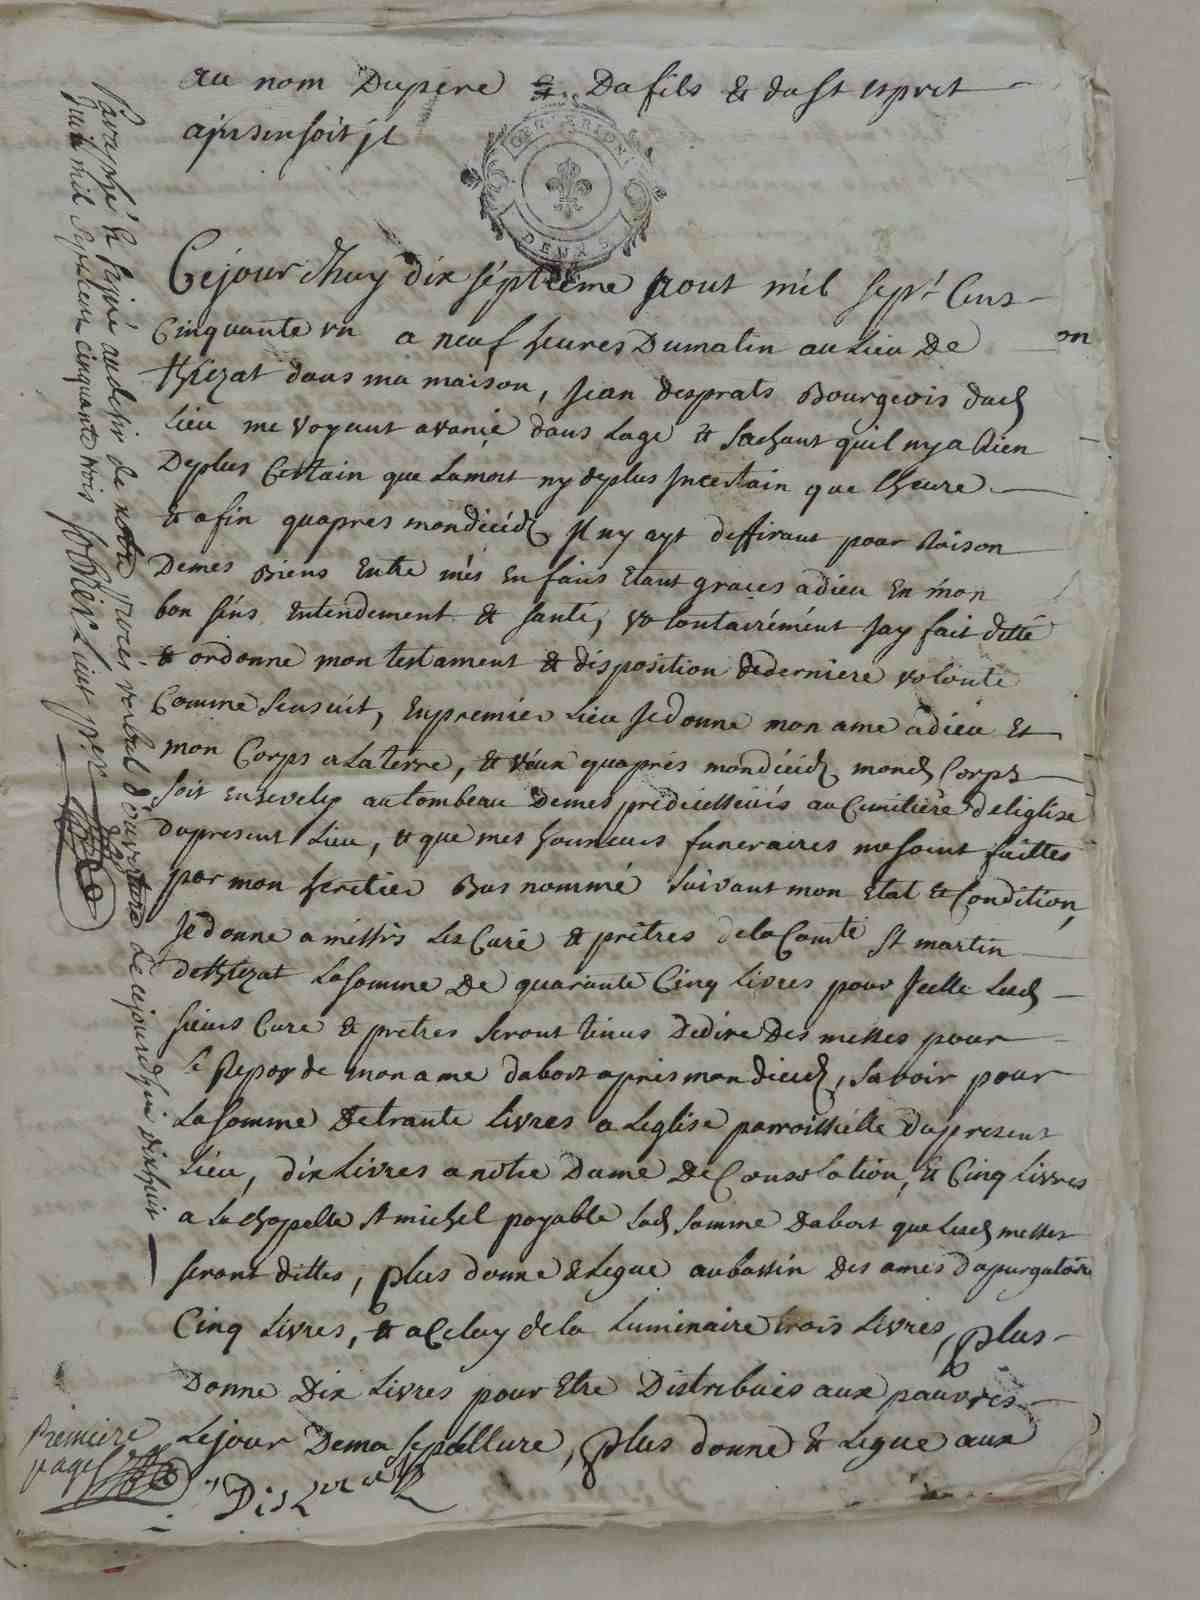 au nom Dupere & Dufils & dust esprit
ainsin soit jl
GEN ... DEUX S
Cejourdhuy dix septieme aout mil sept Cens
Cinquante un a neuf heures Dumatin au Lieu De
thezat dans ma maison, Jean desprats Bourgeois dud
Lieu me voyant avancé dans Lage & sachant quil ny a Rien
Deplus Certain que Lamort ny deplus Jncertain que lheure
& afin quapres mondecéds Jl ny ayt differant pour Raison
Demes Biens Entre més Enfans Etant graces adieu En mon
bon séns Entendement & santé, volontairémént Jay fait ditté
& ordonne mon testament & disposition dederniere volonté
Comme sensuit, Enpremier Lieu Jedonne mon ame adieu Et
mon Corps a Laterre, & véux quaprés mondécéds mond Corps
soit Ensevely autombeau Demes prédécesseurs au Cimitiére deléglise
dupresent Lieu, & que mes honneurs funeraires mesoint faittes
par mon heretier Bas nommé suivant mon Etat & Condition,
Jedonne a messrs Les Curé & prêtres dela Comté St martin
de thezat Lasomme De quarante Cinq Livres pour Jcelle Lesd
sieurs Cure & pretres seront tenus Dedire Des messes pour
le Repos de mon ame dabort aprés mon décéd, savoir pour
Lasomme Detrante Livres a Leglise parroissielle dupresent
Lieu, dix Livres a notre Dame De Consolation, & Cinq Livres
a La chapelle St michel payable Lad somme dabort que Lesd messes
seront dittes, plus donne & Legue aubassin des ames dupurgatoire
Cinq Livres, & a Celuy dela Luminaire trois Livres, plus
Donne Dix Livres pour Etre Distribués aux pauvres
Lejour Dema sepullture, plus donne & Legue aux
Premiere
page
Paraphé & signé au desir de notre procés verbal d'ouverture de cejourdhui dixhuit
Juin mil septcens cinquante trois
on